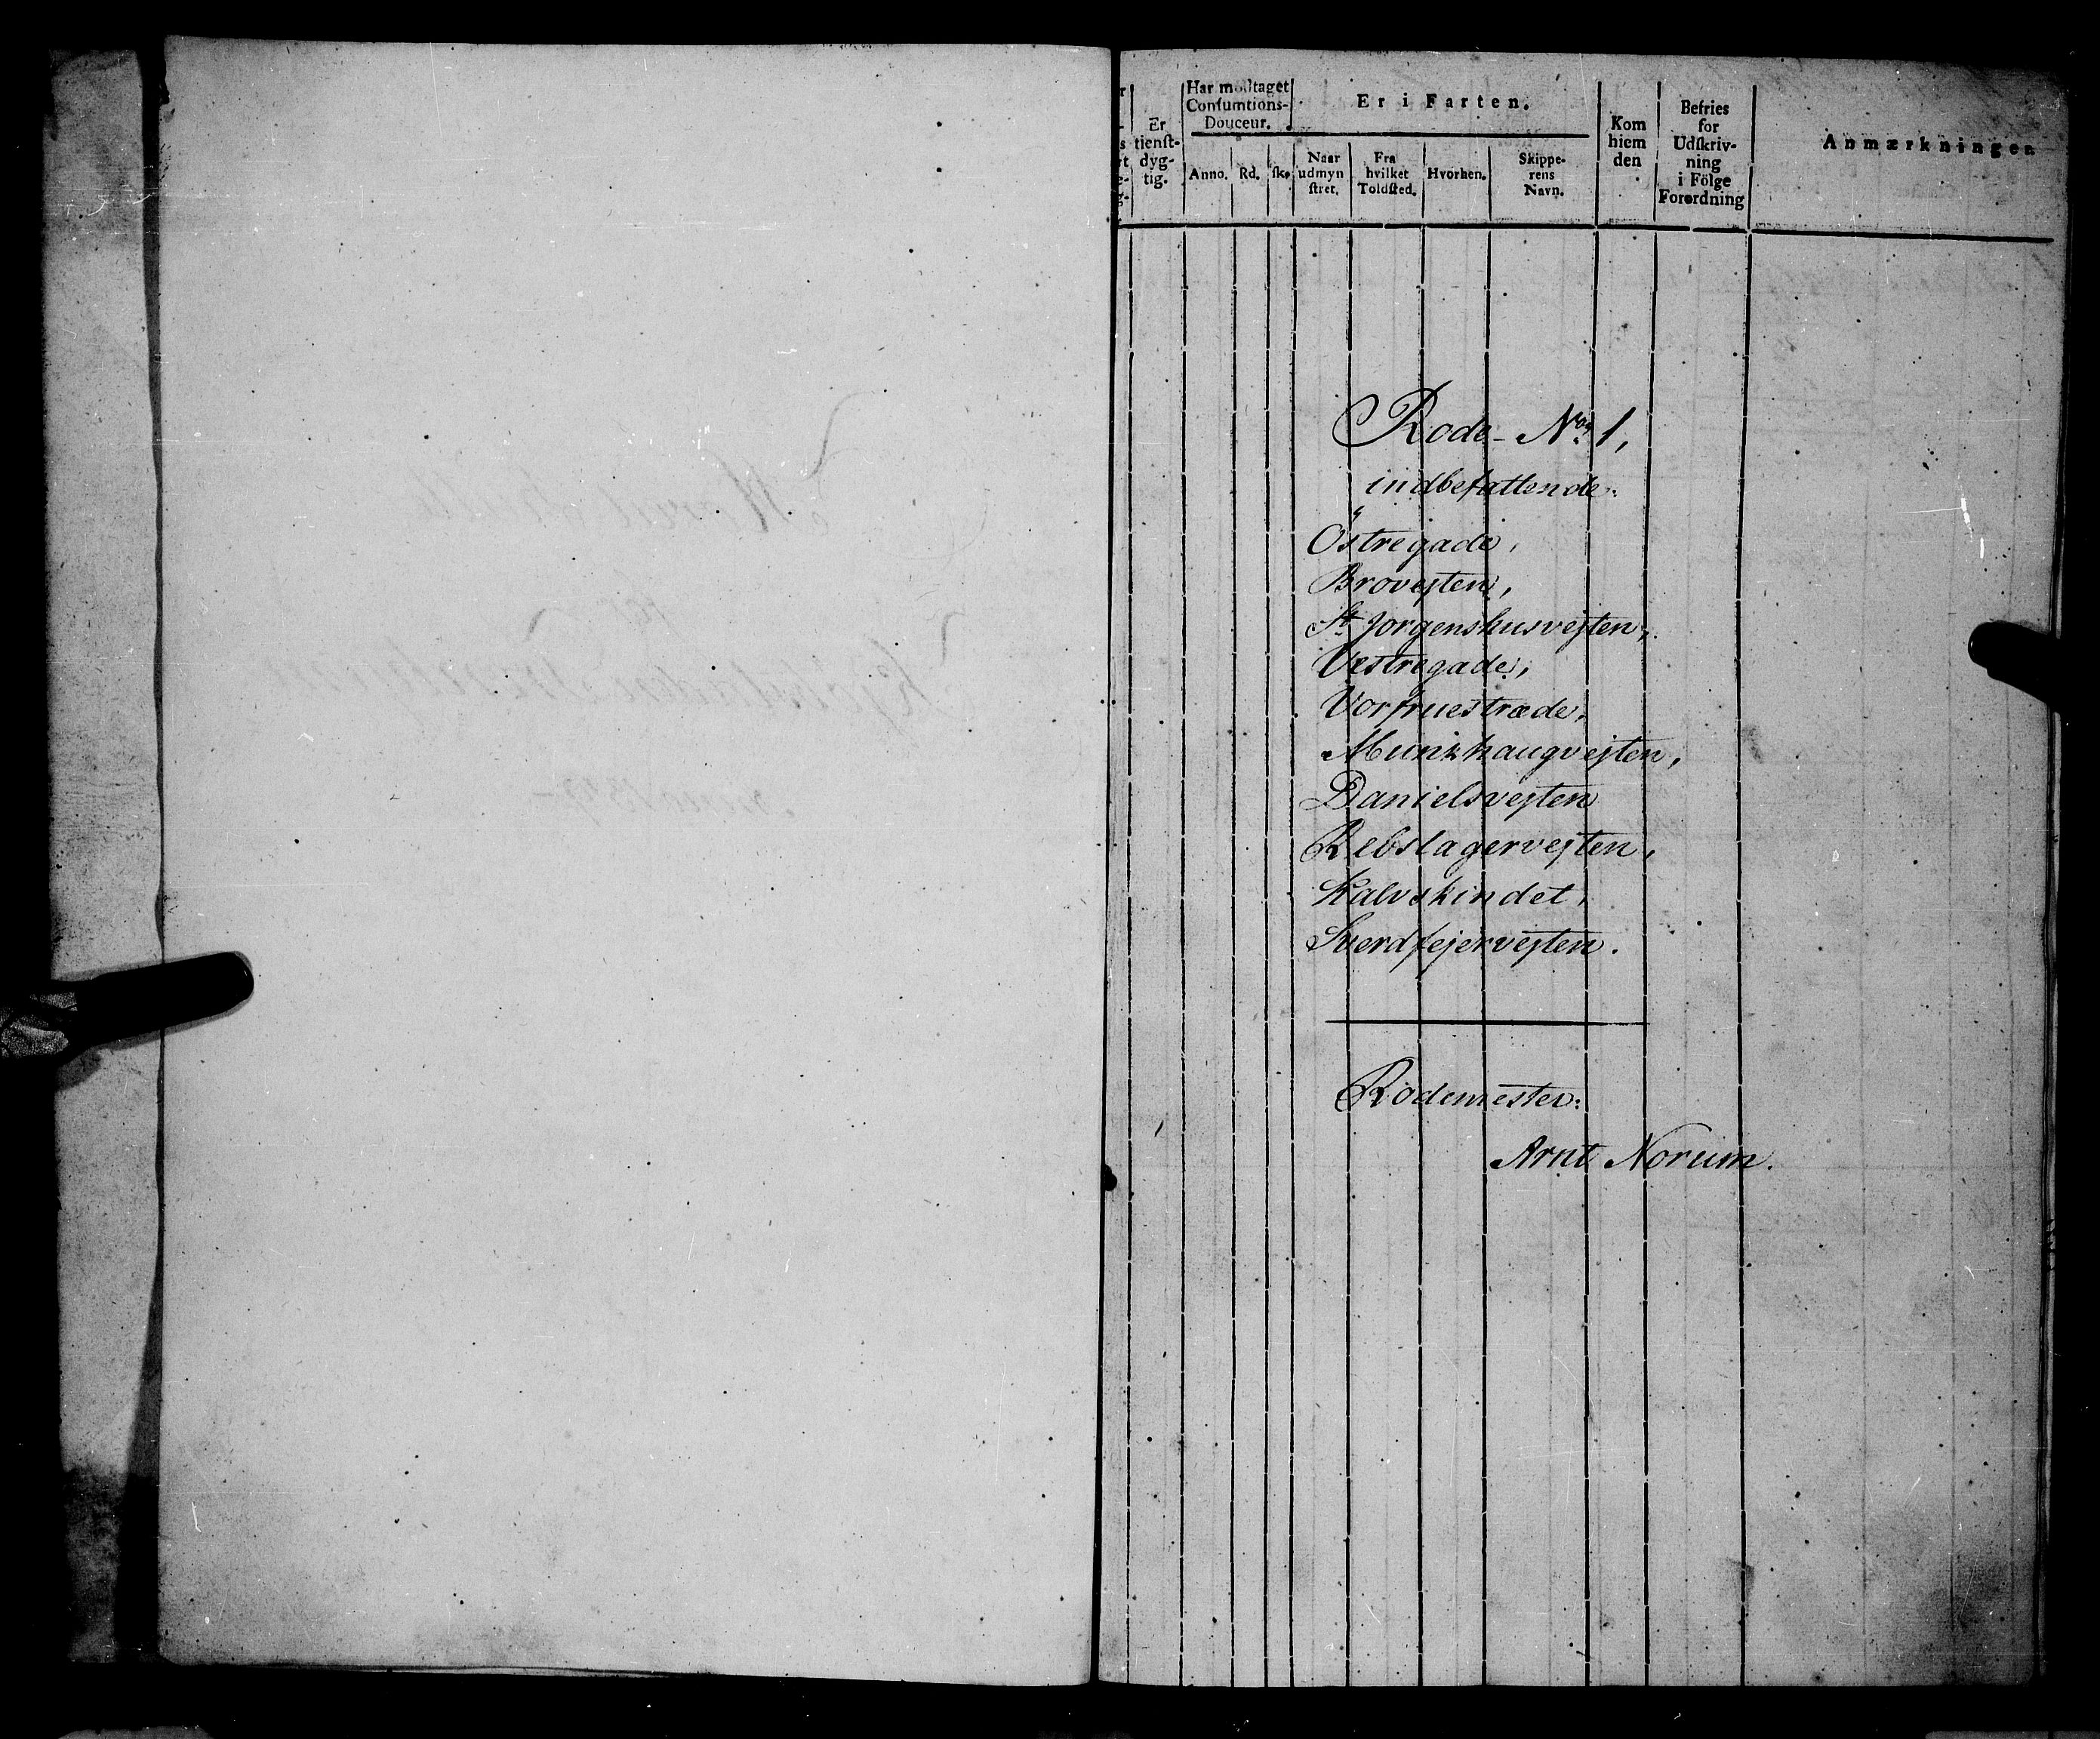 Er tienſt-
dyg-
tig.
Har modtaget
Conſumtions-
Douceur.
Anno.
Rd.
ſk.
Er i Farten.
Naar
udmyn
ſtret.
Fra
hvilket
Toldſted.
Hvorhen.
Skippe-
rens
Navn.
Kom
hiem
den
Befries
for
Udſkriv-
ning
i Fölge
Forordning
Anmærkninger
Rode No. 1,
indbefattende:
Östregade,
Brovejten,
St. Jorgenshusvejten,
Vestregade,
Vorfruestræde,
Munkhaugvejten,
Danielsvejten
Rebslagervejten,
Kalvskindet,
Sverdfejervejten.
Rodemester:
Arnt Norum.